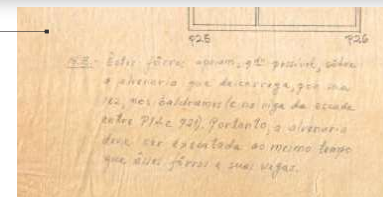 φ25 φ26
N.B.- Estes fôrros apoiam, qdo possível, sôbre
a alvenaria que descarrega, por sua
vez, nos baldrames (e na viga da escada
entre P14 e φ21). Portanto, a alvenaria
deve ser executada ao mesmo tempo
que êsses fôrros e suas vigas.